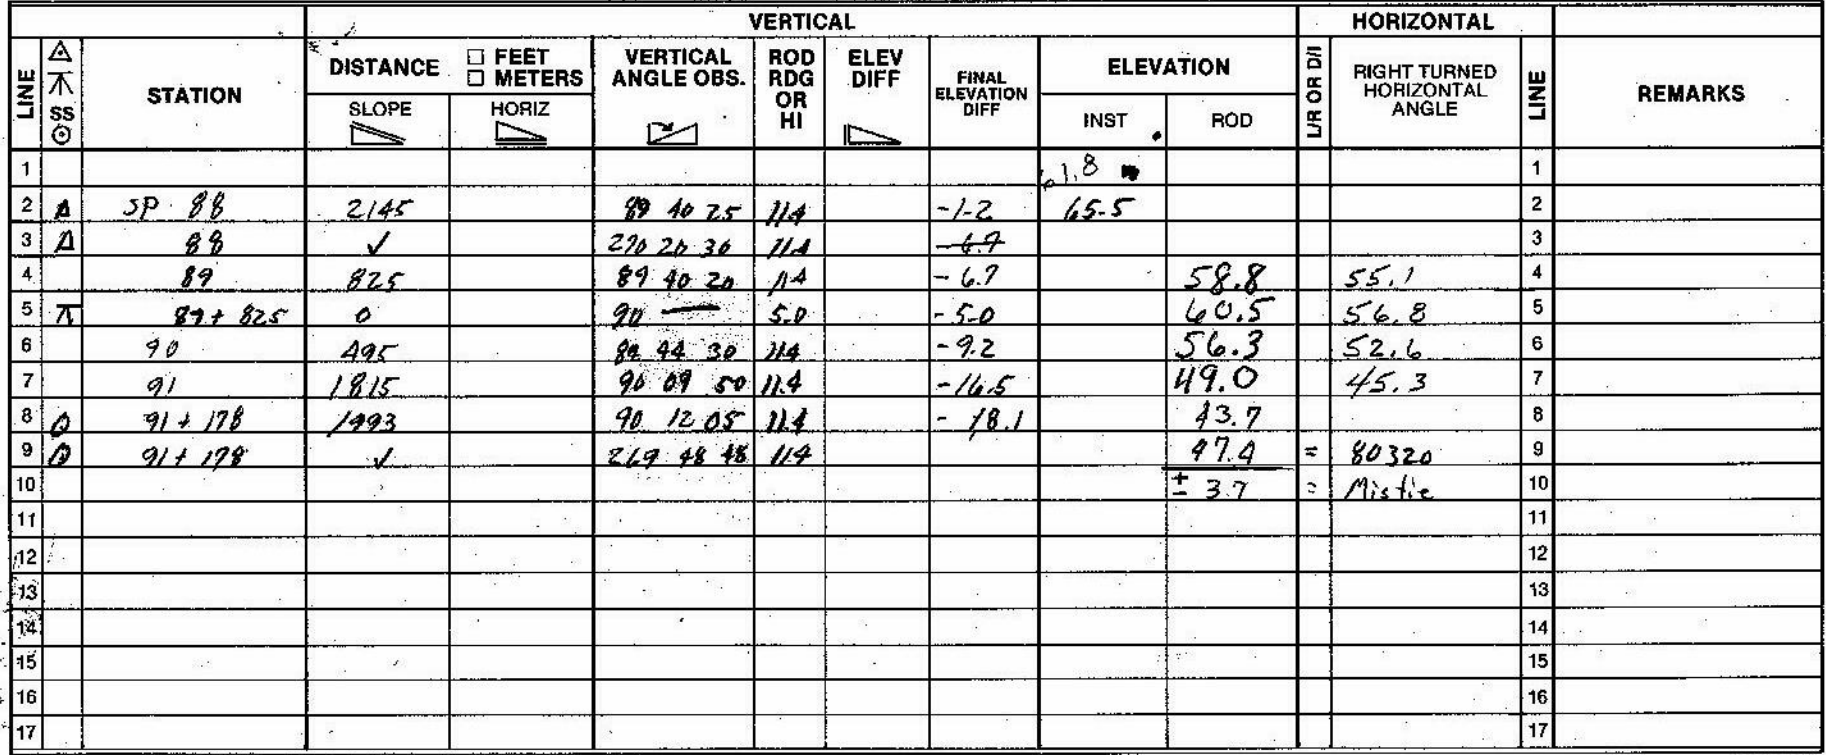 VERTICAL HORIZONTAL
LINE SS STATION DISTANCE □ FEET □ METERS SLOPE HORIZ VERTICAL ANGLE OBS. ROD RDG OR HI ELEV DIFF FINAL ELEVATION DIFF ELEVATION INST ROD L/R OR D/I RIGHT TURNED HORIZONTAL ANGLE LINE REMARKS
1 61.8 1
2 Δ SP 88 2145 89 40 25 11.4 -1.2 65.5 2
3 Δ 88 ✓ 270 20 30 11.4 -6.7 3
4 89 825 89 40 20 11.4 -6.7 58.8 55.1 4
5 89+825 0 90 — 5.0 -5.0 60.5 56.8 5
6 90 495 89 44 30 11.4 -9.2 56.3 52.6 6
7 91 1815 90 09 50 11.4 -16.5 49.0 45.3 7
8 91+178 1993 90 12 05 11.4 -18.1 43.7 8
9 91+178 ✓ 269 48 48 11.4 47.4 = 80320 9
10 ± 3.7 = Mistie 10
11 11
12 12
13 13
14 14
15 15
16 16
17 17